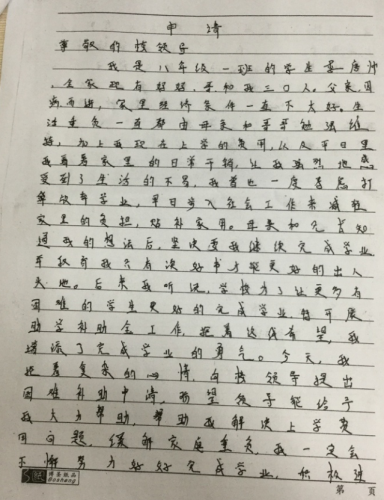 申请
尊敬的校领导
我是八年级一班的学生
全家现有妈妈，哥和我三口人。父亲因
病而逝，家里经济条件一直不太好。生
活重负一直都由母亲和哥哥勉强维
持，加上我现在上学的费用，以及平日里
我看着家里的日常干辆，让我强烈地感
受到了生活的不易，我曾也一度有想打
算放弃学业，早日步入社会工作来减轻
家里的负担，贴补家用。母亲和兄长知
道我的想法后，坚决要我继续完成学业
并教育我只有读好书才能更好的出人
头地。后来我听说，学校为了让更多有
困难的学生更好的完成学业特开展
助学补助金工作，抱着这线希望，我
增添了完成学业的勇气。今天，我
怀着复杂的心情向校领导提出
困难补助申请，希望领导能给予
我大力帮助，帮助我解决上学费
用问题，缓解家庭重负，我一定会
不懈努力好好完成学业，积极进
博圣纸品
Bosheng
第 页